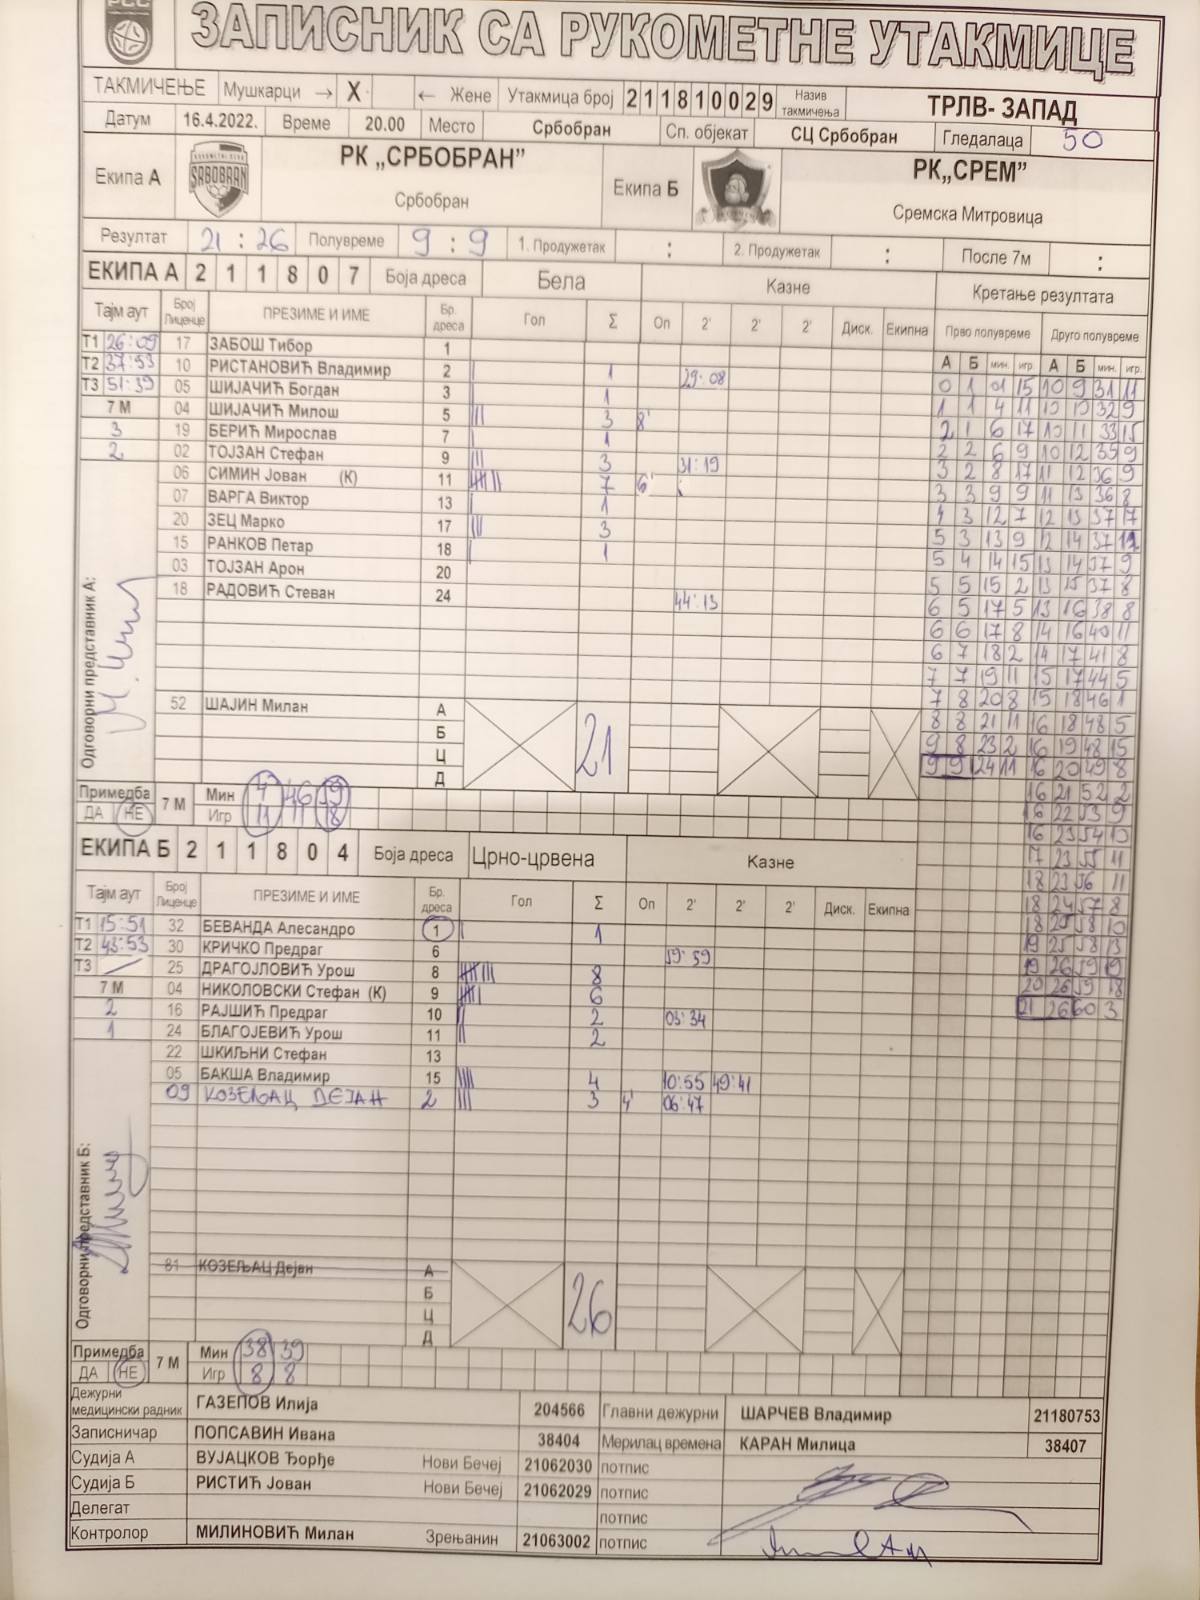 РСС
ЗАПИСНИК СА РУКОМЕТНЕ УТАКМИЦЕ
ТАКМИЧЕЊЕ Мушкарци → X ← Жене Утакмица број 211810029 Назив такмичења ТРЛВ- ЗАПАД
Датум 16.4.2022. Време 20.00 Место Србобран Сп. објекат СЦ Србобран Гледалаца 50
Екипа А SRBOBRAN РК „СРБОБРАН” Србобран Екипа Б РК„СРЕМ” Сремска Митровица
Резултат 21 : 26 Полувреме 9 : 9 1. Продужетак : 2. Продужетак : После 7м :
ЕКИПА А 2 1 1 8 0 7 Боја дреса Бела Казне Кретање резултата
Тајм аут Број Лиценце ПРЕЗИМЕ И ИМЕ Бр. дреса Гол Σ Оп 2' 2' 2' Диск. Екипна Прво полувреме Друго полувреме
А Б мин. игр. А Б мин. игр.
Т1 26:09 17 ЗАБОШ Тибор 1
Т2 37:53 10 РИСТАНОВИЋ Владимир 2 | 1 29:08
Т3 51:39 05 ШИЈАЧИЋ Богдан 3 | 1
7 М 04 ШИЈАЧИЋ Милош 5 ||| 3 8'
3 19 БЕРИЋ Мирослав 7 | 1
2 02 ТОЈЗАН Стефан 9 ||| 3 31:19
06 СИМИН Јован (К) 11 7 6'
07 ВАРГА Виктор 13 | 1
20 ЗЕЦ Марко 17 ||| 3
15 РАНКОВ Петар 18 | 1
03 ТОЈЗАН Арон 20
18 РАДОВИЋ Стеван 24 44:13
0 1 1 15 10 9 31 11
1 1 4 11 10 10 32 9
2 1 6 17 10 11 33 15
2 2 6 9 10 12 35 9
3 2 8 17 11 12 36 9
3 3 9 9 11 13 36 8
4 3 12 7 12 13 37 17
5 3 13 9 12 14 37
5 4 14 15 13 14 37 9
5 5 15 2 13 15 37 8
6 5 17 5 13 16 38 8
6 6 17 8 14 16 40 11
6 7 18 2 14 17 41 8
7 7 19 11 15 17 44 5
7 8 20 8 15 18 46 1
8 8 21 11 16 18 48 5
9 8 23 2 16 19 48 15
9 9 24 11 16 20 49 8
16 21 52 2
16 22 53 9
16 23 54 10
17 23 55 11
18 23 56 11
18 24 57 8
18 25 58 10
19 25 58 13
19 26 59 19
20 26 59 18
21 26 60 3
Одговорни представник А:
52 ШАЈИН Милан А
Б
Ц
Д
21
Примедба ДА НЕ 7 М Мин 4 46 59
Игр 11 11 18
ЕКИПА Б 2 1 1 8 0 4 Боја дреса Црно-црвена Казне
Тајм аут Број Лиценце ПРЕЗИМЕ И ИМЕ Бр. дреса Гол Σ Оп 2' 2' 2' Диск. Екипна
Т1 15:51 32 БЕВАНДА Алесандро 1 | 1
Т2 43:53 30 КРИЧКО Предраг 6 59:59
Т3 25 ДРАГОЈЛОВИЋ Урош 8 8
7 М 04 НИКОЛОВСКИ Стефан (К) 9 6
2 16 РАЈШИЋ Предраг 10 || 2 03:34
1 24 БЛАГОЈЕВИЋ Урош 11 || 2
22 ШКИЉНИ Стефан 13
05 БАКША Владимир 15 |||| 4 10:55 49:41
09 КОЗЕЉАЦ ДЕЈАН 2 ||| 3 4' 06:47
Одговорни представник Б:
81 КОЗЕЉАЦ Дејан А
Б
Ц
Д
26
Примедба ДА НЕ 7 М Мин 38 39
Игр 8 8
Дежурни медицински радник ГАЗЕПОВ Илија 204566 Главни дежурни ШАРЧЕВ Владимир 21180753
Записничар ПОПСАВИН Ивана 38404 Мерилац времена КАРАН Милица 38407
Судија А ВУЈАЦКОВ Ђорђе Нови Бечеј 21062030 потпис
Судија Б РИСТИЋ Јован Нови Бечеј 21062029 потпис
Делегат потпис
Контролор МИЛИНОВИЋ Милан Зрењанин 21063002 потпис